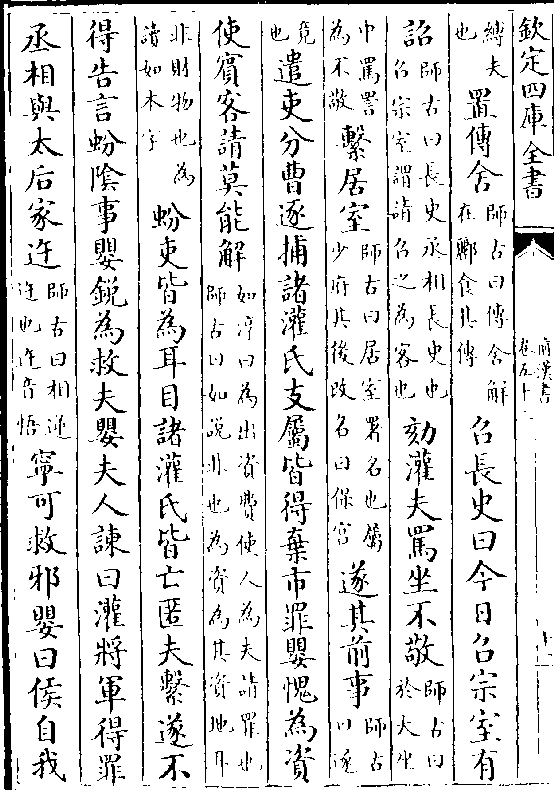 欽定四庫全書
前漢書
卷五十二
十一
縛夫也置傳舍師古曰傳舍解在酈食其傳召長史曰今日召宗室有
詔師古曰長史丞相長史也召宗室謂請召之為客也劾灌夫罵坐不敬師古曰於大坐
中罵詈為不敬繫居室師古曰居室署名也屬少府其後改名曰保宫遂其前事師古曰遂
竟也遣吏分曹逐捕諸灌氏支屬皆得棄市罪嬰愧為資
使賓客請莫能解如淳曰為出資費使人為夫請罪也師古曰如說非也為資為其資地耳
非財物也為讀如本字蚡吏皆為耳目諸灌氏皆亡匿夫繫遂不
得告言蚡隂事嬰銳為救夫嬰夫人諫曰灌將軍得罪
丞相與太后家迕師古曰相逆迕也迕音悟寧可救邪嬰曰侯自我